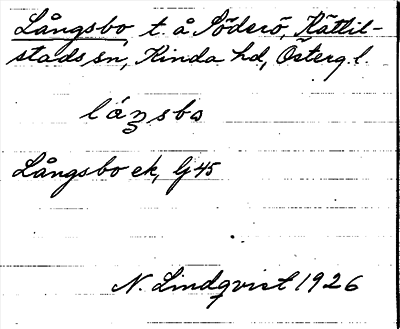 Långsbo t. å Söderö, Kättil-
stads sn, Kinda hd, Österg. l.
lá𝑛̡sbo
Långsbo ek, lj 45
N. Lindqvist 1926